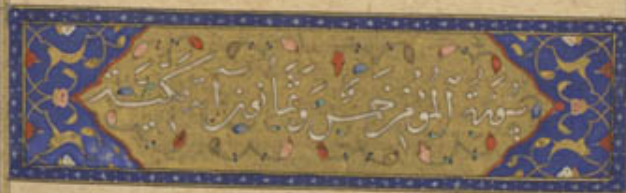 سورة المؤمن خمس وثمانون آية مكية